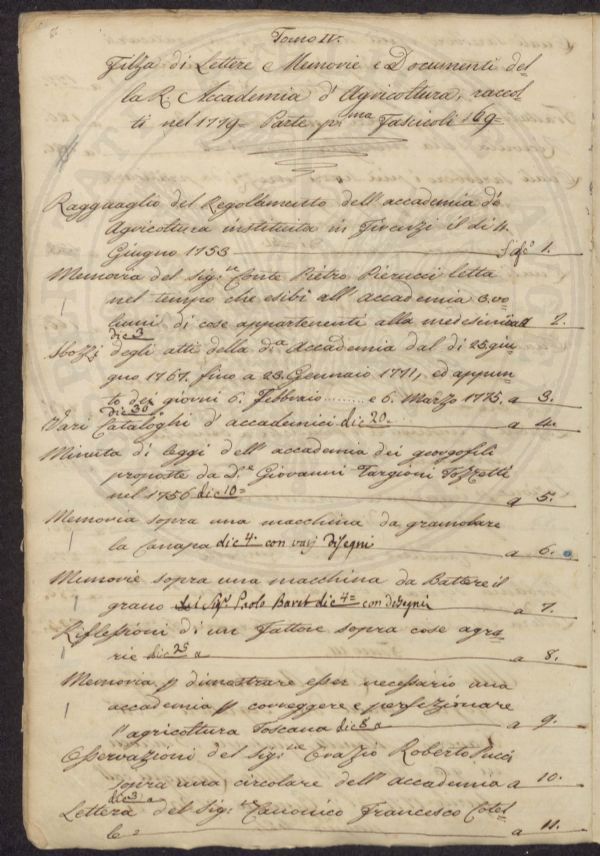 Tomo IV.
Filza di Lettere e Memorie e Documenti del-
la R. Accademia d'Agricoltura, raccol-
ti nel 1779 = Parte pr.ma Fascicoli 169 =
Ragguaglio del Regolamento dell'accademia d'
Agricoltura instituita in Firenze il dì 4.
Giugno 1753 1.
Memoria del Sig.re Conte Pietro Pierucci letta
nel tempo che esibì all'accademia 3. vo-
lumi di cose appartenenti alla medesima a 2.
di c. 3
Sbozzi degli atti della d.a Accademia dal dì 23. giu-
gno 1767. fino a 23. Gennaio 1771, ed appun-
to dei giorni 6. Febbraio ......... e 6. Marzo 1775. a 3.
di c. 30
Vari Cataloghi d'accademici di c. 20. a 4.
Minuta di leggi dell'accademia dei georgofili
proposte da D.e Giovanni Targioni Tozzetti
nel 1756 di c. 10 = a 5.
Memoria sopra una macchina da gramolare
la Canapa di c. 4. con varj disegni a 6.
Memorie sopra una macchina da Battere il
grano del Sig.r Paolo di c. 4 = con disegni a 7.
Riflessioni di un Fattore sopra cose agra-
rie di c. a 8.
Memoria p dimostrare esser necessario una
accademia p correggere e perfezionare
l'agricoltura Toscana di c. 8 a 9.
Osservazioni del Sig.re Orazio Roberto Pucci
sopra una circolare dell'accademia a 10.
di c. 3
Lettera del Sig.re Canonico Francesco Cotel-
le = a 11.